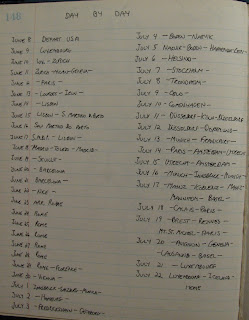 148
DAY BY DAY
JUNE 8 DEPART USA
JUNE 9 LUXEMBOURG
JUNE 10 LUX - ZURICH
JUNE 11 ZURICH - GENEVA
JUNE - PARIS -
JUNE 13 - - IRUN -
JUNE 14 - LISBON
JUNE 15 LISBON - S. MARTINO D PORTO
JUNE 16 SAN MARTINO DO PORTO
JUNE 17 S.M.D.P. - LISBON -
JUNE 18 MADRID
JUNE 19 - SEVILLE -
JUNE 20 - BARCELONA
JUNE 21 BARCELONA
JUNE 22 - NICE -
JUNE 23 NICE ROME
JUNE 24 ROME
JUNE 25 ROME
JUNE 26 ROME
JUNE 27 ROME
JUNE 28 ROME
JUNE 29 ROME -
JUNE 30 - VIENNA -
JULY 1 MUNICH
JULY 2 - HAMBURG -
JULY 3 - -
JULY 4 - - NARVIK
JULY 5 NARVIK -
JULY 6 - HELSINKI -
JULY 7 - STOCKHOLM -
JULY 8 - TRONDHEIM -
JULY 9 - OSLO -
JULY 10 - COPENHAGEN -
JULY 11 - DUSSELDORF - KOLN - DUSSELDORF
JULY 12 DUSSELDORF -
JULY 13 - MUNICH -
JULY 14 - PARIS - AMSTERDAM -
JULY 15 UTRECHT - AMSTERDAM -
JULY 16 - MUNICH - - MUNICH
JULY 17 - MAINZ - KOBLENZ - MAINZ
MANNHEIM - BASEL -
JULY 18 - CALAIS - PARIS -
JULY 19 - BREST - RENNES -
MT. ST. MICHEL - PARIS -
JULY 20 - AVIGNON - GENEVA -
LAUSANNE - BASEL -
JULY 21 - LUXEMBOURG
JULY 22 LUXEMBOURG - ICELAND -
HOME